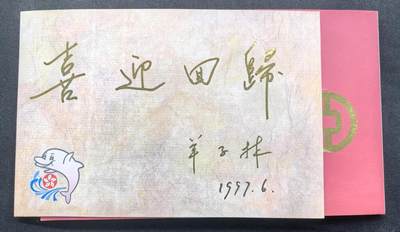 喜迎回歸
羊子林
1997.6.